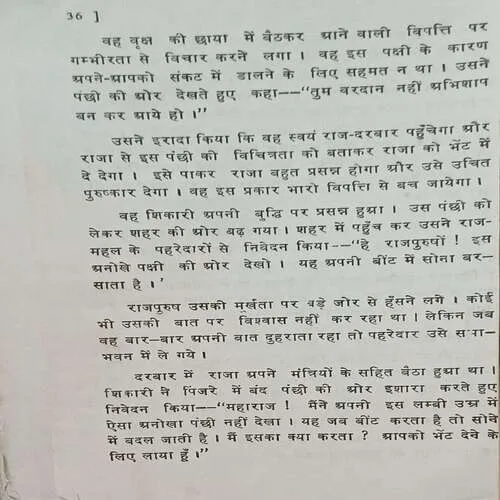 36 ]
वह वृक्ष की छाया में बैठकर आने वाली विपत्ति पर
गम्भीरता से विचार करने लगा । वह इस पक्षी के कारण
अपने-आपको संकट में डालने के लिए सहमत न था । उसने
पंछी की ओर देखते हुए कहा—–“तुम वरदान नहीं अभिशाप
बन कर आये हो ।”
उसने इरादा किया कि वह स्वयं राज-दरबार पहुँचेगा और
राजा से इस पंछी की विचित्रता को बताकर राजा को भेंट में
दे देगा । इसे पाकर राजा बहुत प्रसन्न होगा और उसे उचित
पुरुष्कार देगा । वह इस प्रकार भारी विपत्ति से बच जायेगा ।
वह शिकारी अपनी बुद्धि पर प्रसन्न हुआ । उस पंछी को
लेकर शहर की ओर बढ़ गया । शहर में पहुँच कर उसने राज-
महल के पहरेदारों से निवेदन किया—–“हे राजपुरुषों ! इस
अनोखे पक्षी की ओर देखो । यह अपनी बींट में सोना बर-
साता है ।’
राजपुरुष उसकी मूर्खता पर बड़े जोर से हँसने लगे । कोई
भी उसकी बात पर विश्वास नहीं कर रहा था । लेकिन जब
वह बार-बार अपनी बात दुहराता रहा तो पहरेदार उसे सभा-
भवन में ले गये ।
दरबार में राजा अपने मंत्रियों के सहित बैठा हुआ था ।
शिकारी ने पिंजरे में बंद पंछी की ओर इशारा करते हुए
निवेदन किया—–“महाराज ! मैंने अपनी इस लम्बी उम्र में
ऐसा अनोखा पंछी नहीं देखा । यह जब बींट करता है तो सोने
में बदल जाती है । मैं इसका क्या करता ? आपको भेंट देने के
लिए लाया हूँ ।”